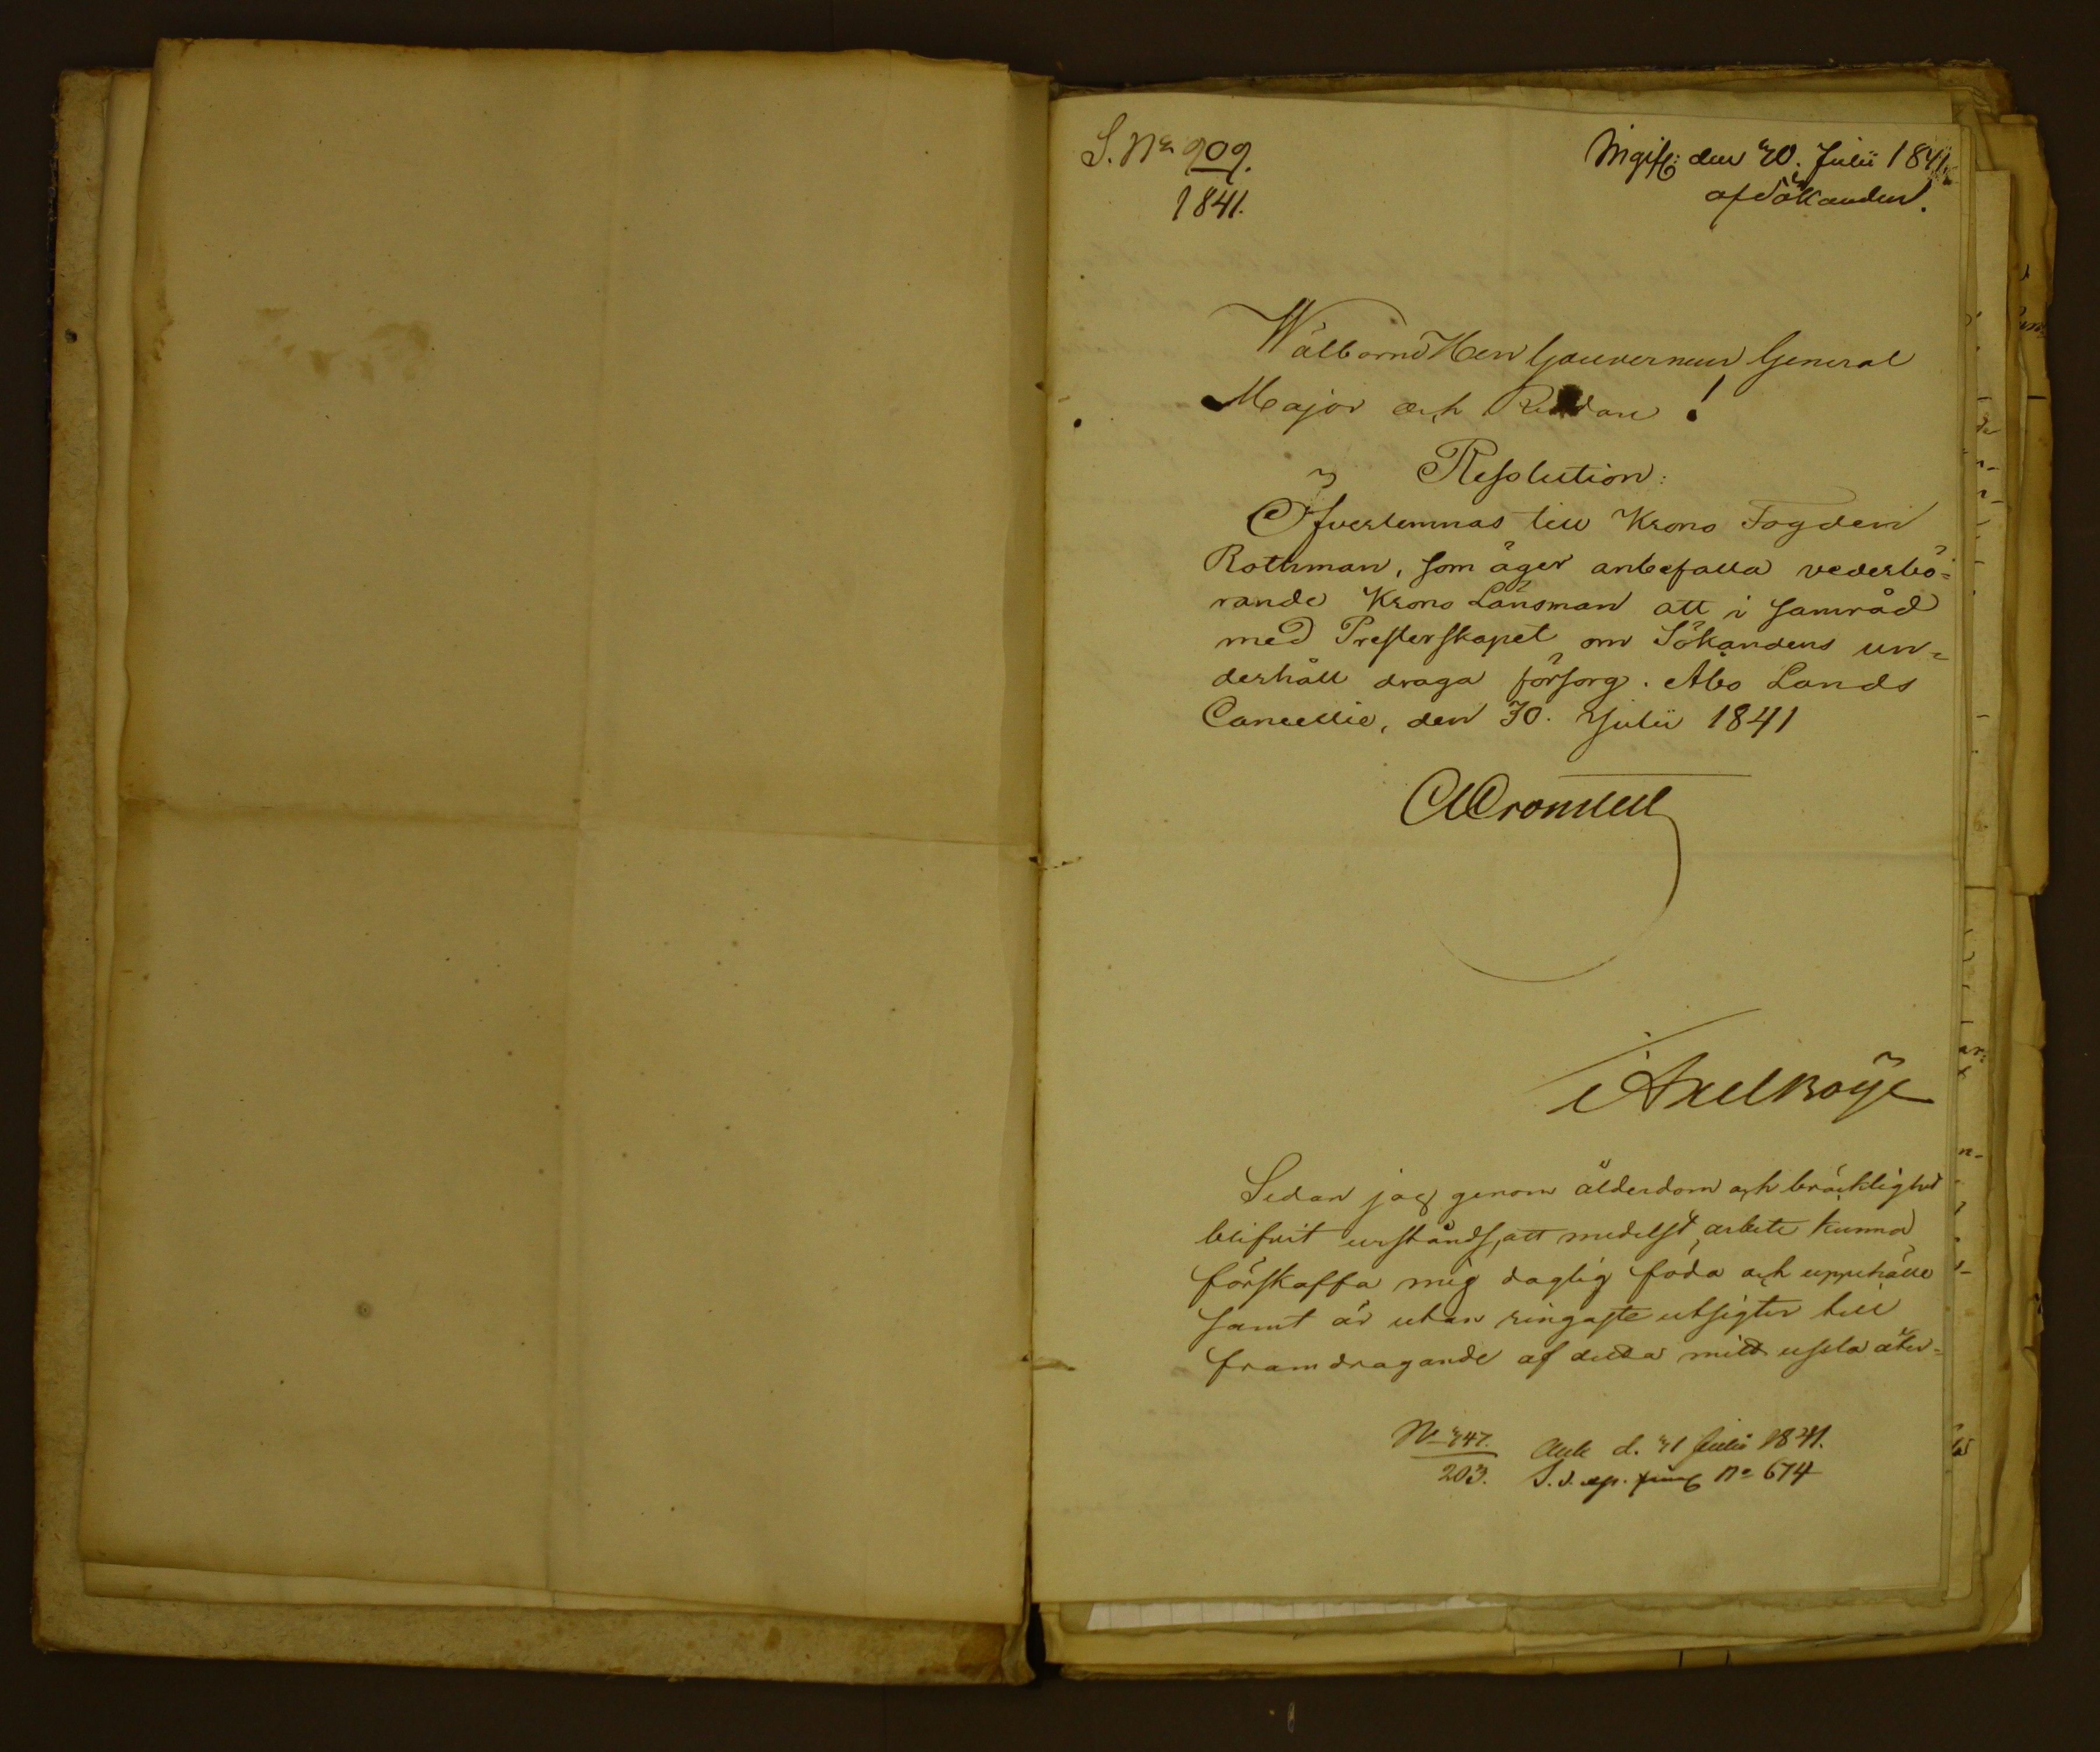 S. No 909.
1841.
Ingift: den 30. Julii 1841.
af Sökanden.
Wälborne Herr Gouverneur General
Major och Riddare!
Resolution:
Öfverlemnas till Krono Fogden
Rothman, som äger anbefalla vederbö=
rande Krono Länsman att i samråd
med Presterskapet om Sökandens un=
derhåll draga försorg. Åbo Lands
Cancellie, den 30. Julii 1841
Cronstedt
Axel Boije
Sedan jag genom ålderdom och bräcklighet
blifvit urståndsatt medelst arbete kunna
förskaffa mig daglig föda och uppehälle
samt är utan ringaste utsigter till
framdragande af detta mitt usla åter=
N 347.
203.
Ank d. 31 Julii 1841.
No 674